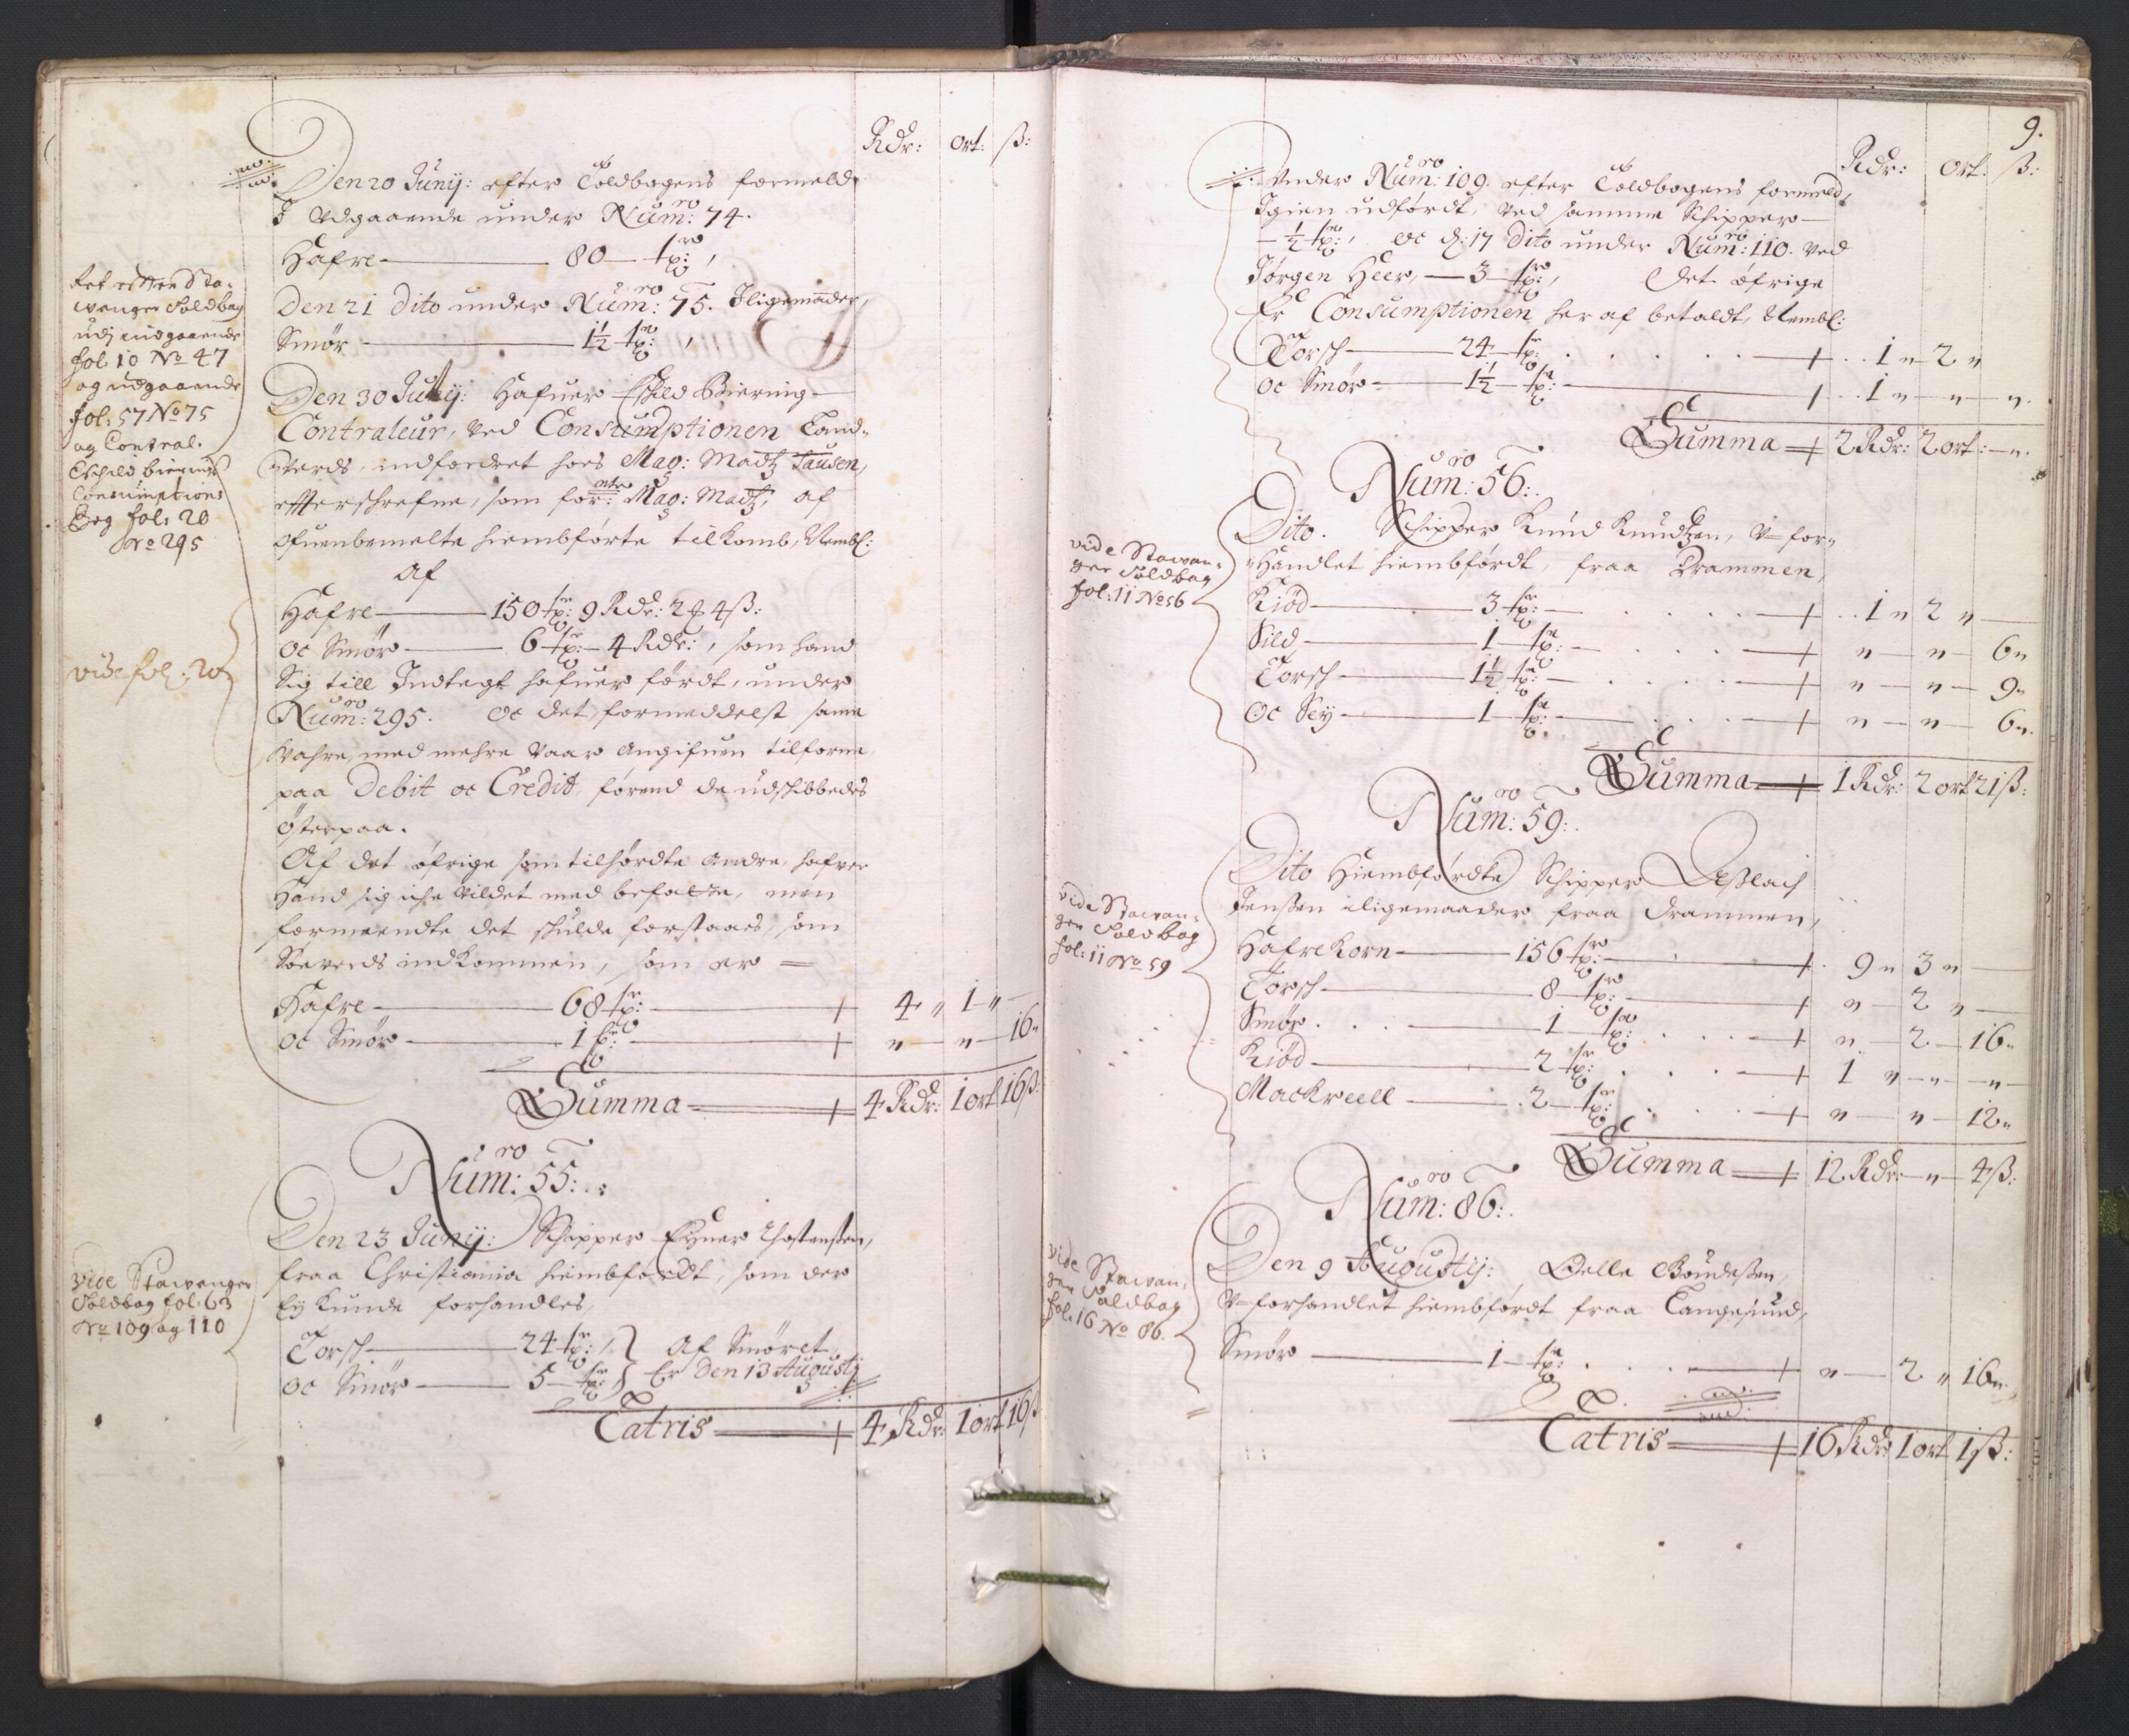 Rdr: ort: ß:
Den 20 Junij: efter Toldbogens formeld,
J Udgaaende under Num:ro 74.
Hafre 80 tr:
Den 21 Dito under Num:ro 75. Iligemaader,
Smør 1½ tr:
Den 30 July: Hafuer Eskild Biering
Contraleur, ved Consumptionen Land-
Verds, indfordret hoes Mag: Madtz Tausen,
effterschrefne, som for:ne Mag: Madtz, af
ofuenbemelte hiembførte tilkomb, Nembl:
af
Hafre 150 tr: 9 Rdr: 2 4 ß:
oc Smør 6 tr: 4 Rdr:, som hand
Sig till Indtegt hafuerførdt, under
Num:ro 295. oc det formeddelst samme
Vahre, med mehre vaar Angifuen tilforne
paa Debit oc Credit, førend de udschibbedes
Østerpaa.
Af det øfrige som tilhørdte andre, hafuer
Hand sig iche vildet med befatte, men
formeendte det schulde forstaaes, som
Søeverds indkommen, som er
Hafre 68 tr: 4 " 1 "
oc Smør 1 tr: " " 16"
Summa 4 Rdr: 1 ort 16 ß:
Num:ro 55:
Den 23 Junij: Schipper Eyner Thostensen,
fraa Christiania hiembførdt, som der
Ey kunde forhandles,
Torsch 24 tr: Af Smøret,
oc Smør 5 tr: Er den 13 Augustij
Latris 4 Rdr: 1 ort 16 ß
Ref effter Sta-
wanger Toldbog
udj indgaaende
fol: 10 No 47
og udgaaende
fol: 57 No 75
og Contral.
Eschild bierings
Consumptions
Bog fol: 20
No 295
vide fol: 20
vide Stawanger
Toldbog fol: 63
No 109 og 110
9.
Rdr: ort: ß:
Under Num:ro 109. efter Toldbogens formeld,
Igien udførdt, ved samme Schipper
½ tr:, oc d: 17 Dito under Num:ro 110. ved
Jørgen Heer, 3 tr:, Det øfrige
Er Consumptionen her af betaldt, Nembl:
Torsch 24 tr: 1 " 2 "
oc Smør 1½ tr: 1 " " "
Summa 2 Rdr: 2 ort: "
Num:ro 56:
Dito. Schipper Knud Knudtzen, U-for-
Handlet hiembførdt, fraa Drammen,
Kiød 3 tr: 1 " 2 "
Sild 1 tr: " " 6"
Torsch 1½ tr: " " 9"
oc Sey 1 tr: " " 6"
Summa 1 Rdr: 2 ort 21 ß:
Num:ro 59:
Dito Hiembførdte Schipper Aßlach
Jenßen iligemaader fraa Drammen,
Hafrekorn 156 tr: 9 " 3 "
Torsch 8 tr: " 2 "
Smør 1 tr: " 2 16"
Kiød 2 tr: 1 " " "
Mackreell 2 tr: " " 12"
Summa 12 Rdr: " 4 ß:
Num:ro 86:
Den 9 Augustij: Pelle Boudeßen,
U-forhandlet hiembførdt fraa Langesund,
Smør 1 tr: " 2 " 16"
Latris 16 Rdr: 1 ort 1 ß:
vide Stawan-
ger Toldbog
fol: 11 No 56
vide Stawan-
ger Toldbog
fol: 11 No 59
vide Stawan-
ger Toldbog
fol: 16 No 86.